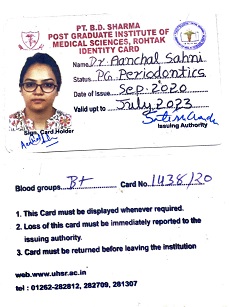 PT. B.D. SHARMA
POST GRADUATE INSTITUTE OF
MEDICAL SCIENCES, ROHTAK
IDENTITY CARD
Name: Dr. Aanchal Sahni
Status: PG Periodontics
Date of Issue Sep. 2020
Valid upt to July 2023
Sign. Card Holder
Issuing Authority
Blood groups. B+ Card No 1438/20
1. This Card must be displayed whenever required.
2. Loss of this card must be immediately reported to the
issuing authority.
3. Card must be returned before leaving the institution
web.www.uhsr.ac.in
tel : 01262-282812, 282709, 281307